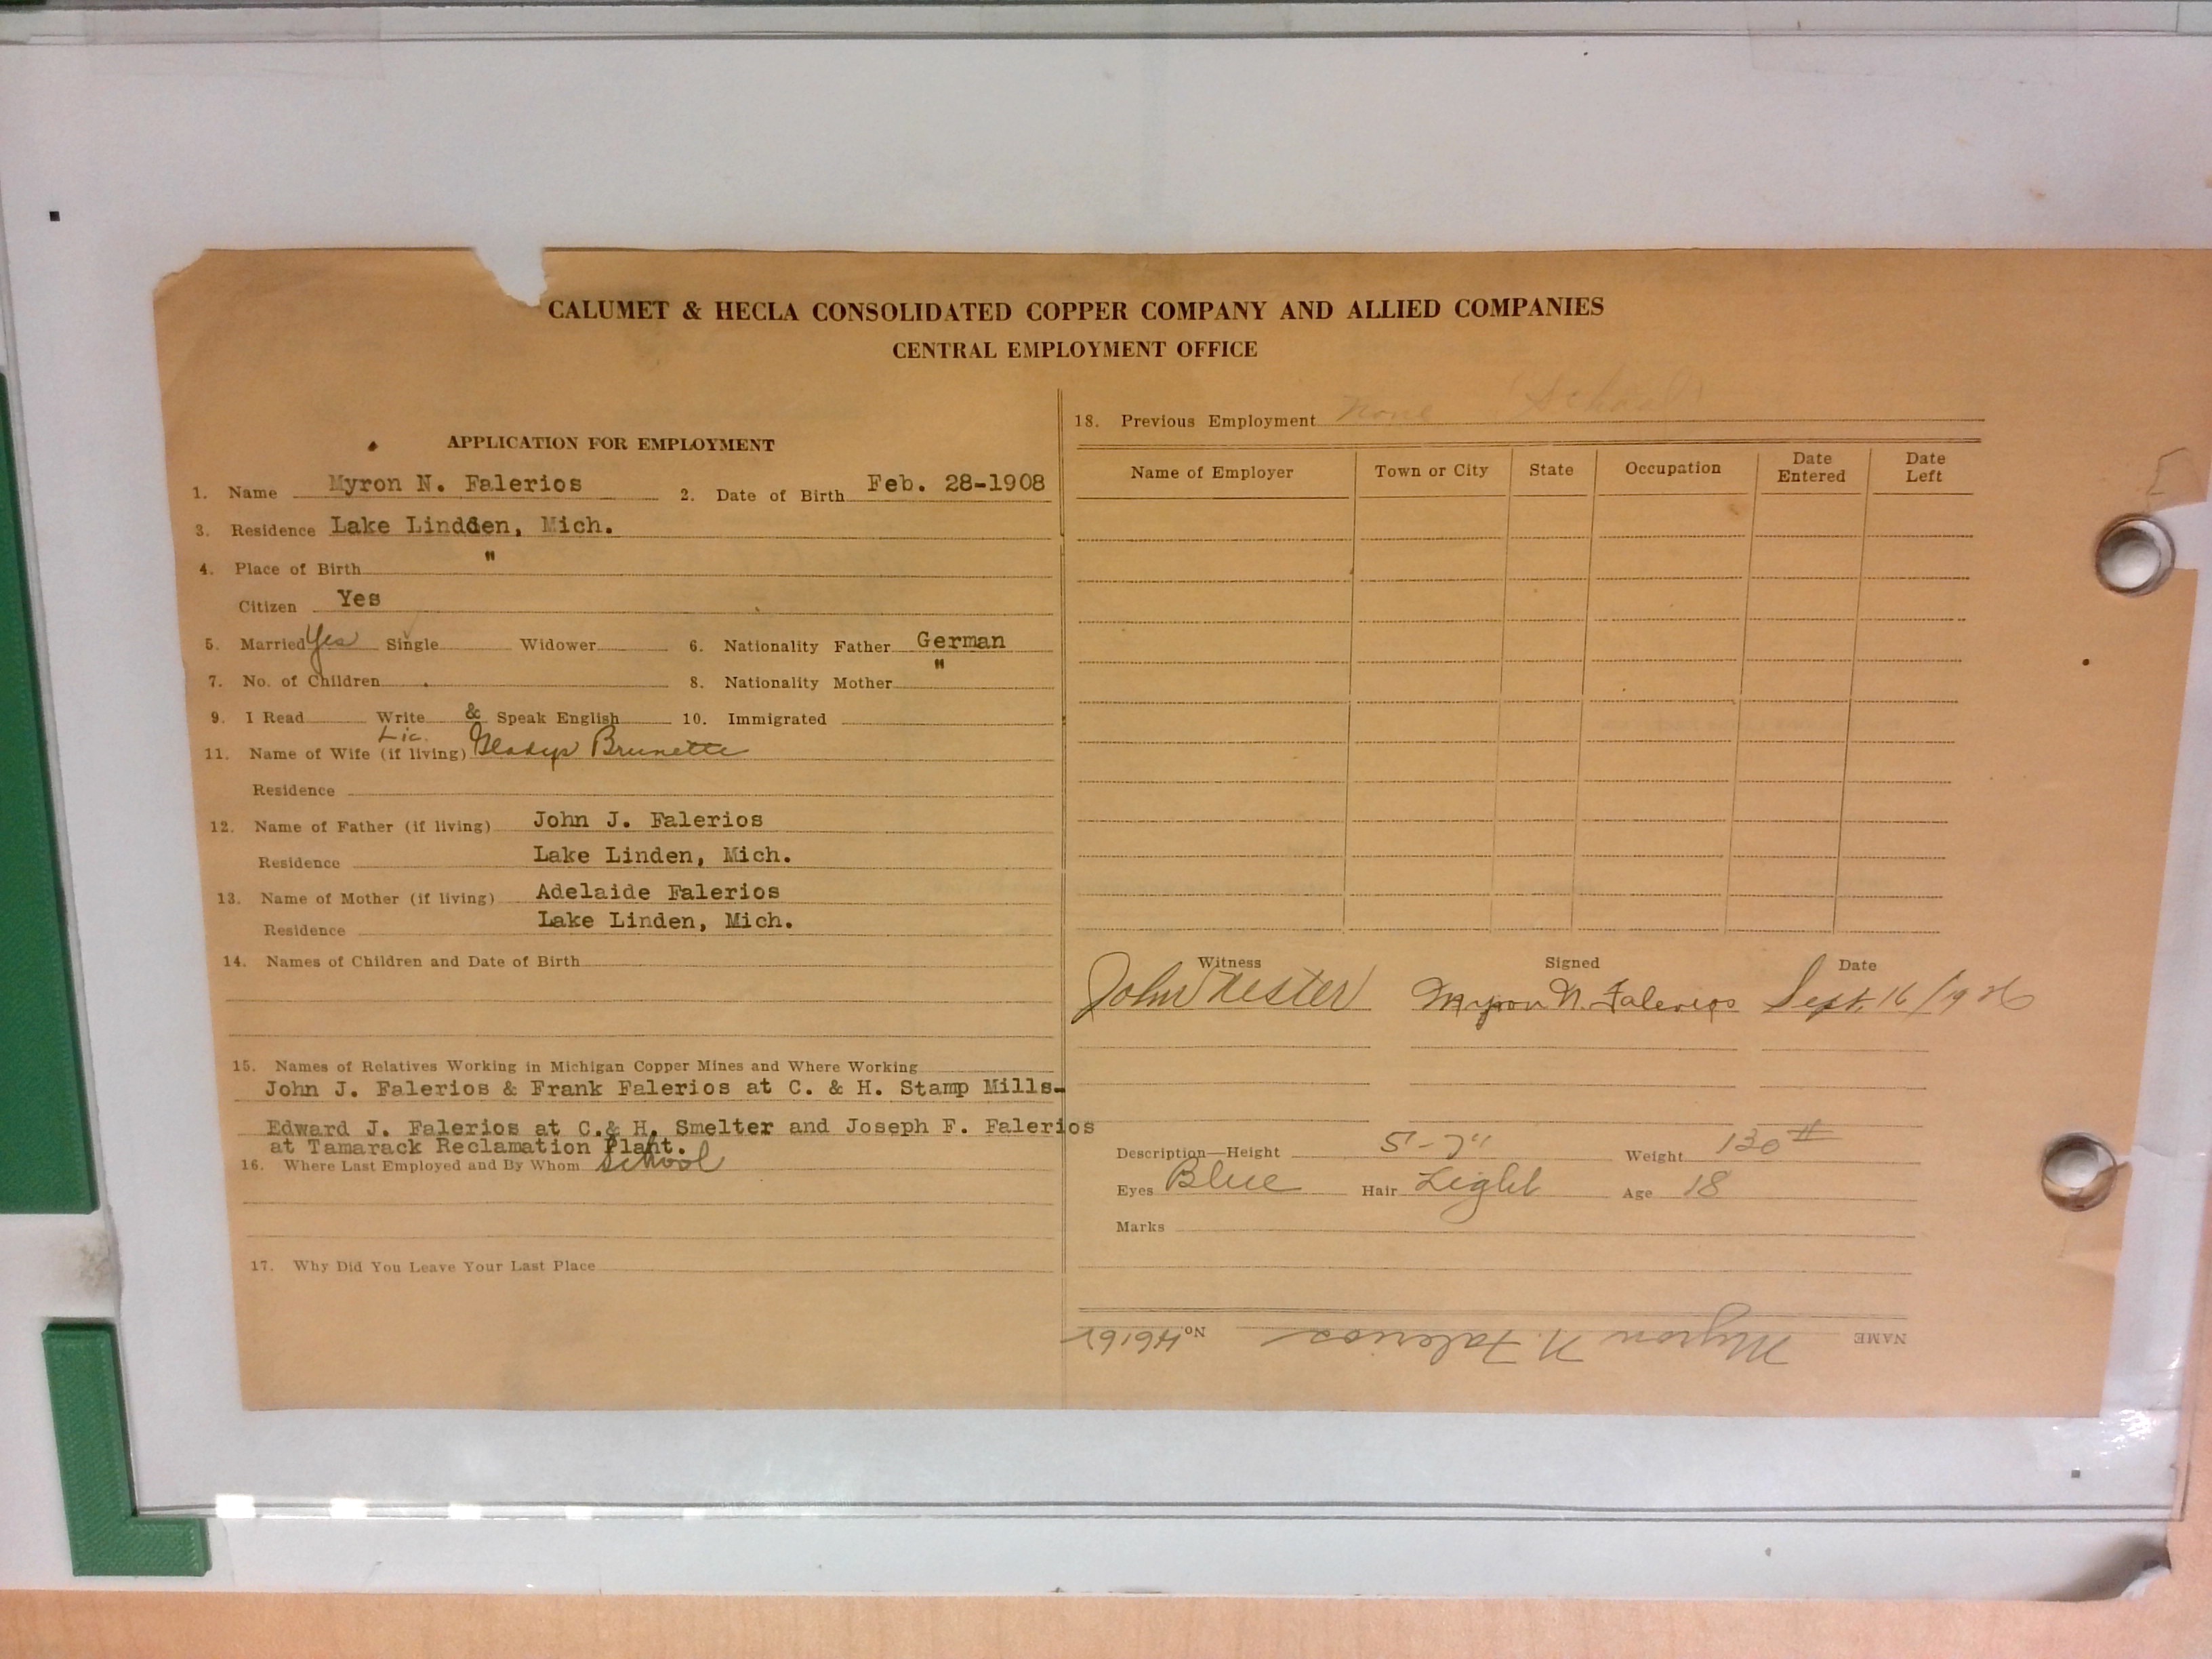 CALUMET & HECLA CONSOLIDATED COPPER COMPANY AND ALLIED COMPANIES
CENTRAL EMPLOYMENT OFFICE
APPLICATION FOR EMPLOYMENT
1. Name Myron N. Falerios 2. Date of Birth Feb. 28-1908
3. Residence Lake Lindden, Mich.
4. Place of Birth "
Citizen Yes
5. Married Yes Single Widower 6. Nationality Father German
7. No. of Children 8. Nationality Mother "
9. I Read Write & Speak English 10. Immigrated
Lic.
11. Name of Wife (if living) Gladys Brunette
Residence
12. Name of Father (if living) John J. Falerios
Residence Lake Linden, Mich.
13. Name of Mother (if living) Adelaide Falerios
Residence Lake Linden, Mich.
14. Names of Children and Date of Birth
15. Names of Relatives Working in Michigan Copper Mines and Where Working
John J. Falerios & Frank Falerios at C. & H. Stamp Mills-
Edward J. Falerios at C.& H. Smelter and Joseph F. Falerios
at Tamarack Reclamation Plant.
16. Where Last Employed and By Whom School
17. Why Did You Leave Your Last Place
18. Previous Employment None School
Name of Employer Town or City State Occupation Date Entered Date Left
Witness Signed Date
John Nester Myron N. Falerios Sept. 16/1926
Description—Height 5'-7" Weight 130 #
Eyes Blue Hair Light Age 18
Marks
NAME Myron N. Falerios No.